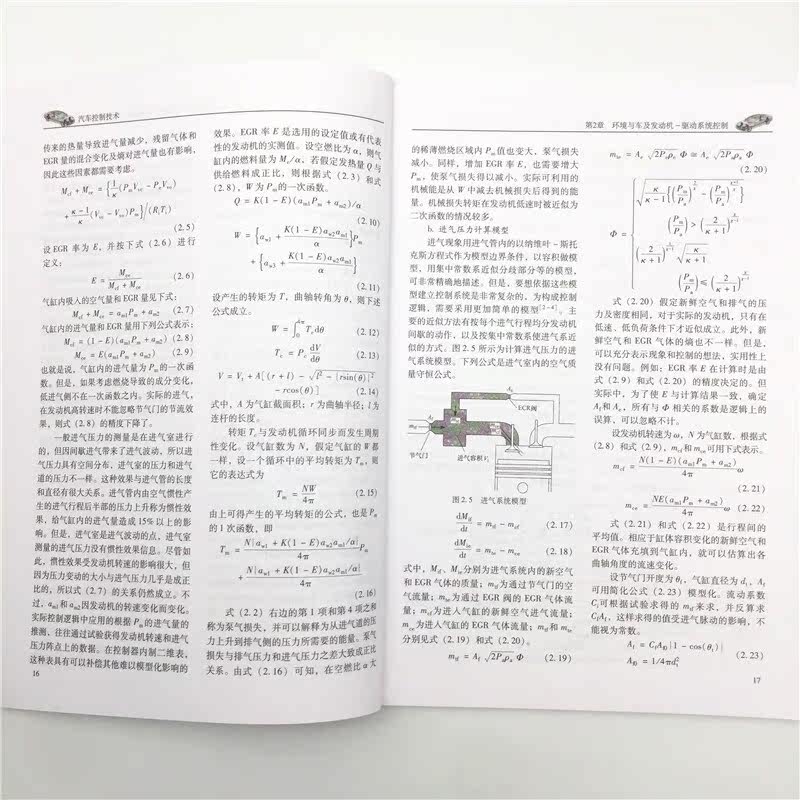 汽车控制技术
传来的热量导致进气量减少，残留气体和
EGR 量的混合变化及熵对进气量也有影响，
因此这些因素都需要考虑。
(2.5)
设 EGR 率为 E，并按下式（2.6）进行
定义：
(2.6)
气缸内吸入的空气量和 EGR 量见下式：
(2.7)
气缸内的进气量和 EGR 量用下列公式表示：
(2.8)
(2.9)
也就是说，气缸内的进气量为 Pm 的一次函
数。但是，如果考虑燃烧导致的成分变化，
低进气侧不在一次函数之内。实际的进气，
在发动机高转速时不能忽略节气门的节流效
果，则式（2.8）的精度下降了。
一般进气压力的测量是在进气室进行
的，但因间歇进气带来了进气波动，所以进
气压力具有空间分布，进气室的压力和进气
道的压力不一样。这种效果与进气管的长度
和直径有很大关系。进气管内由空气惯性产
生的进气行程后半部的压力上升称为惯性效
果，给气缸内的进气量造成 15% 以上的影
响。但是，进气室是进气波动的点，进气室
测量的进气压力没有惯性效果信息。尽管如
此，惯性效果受发动机转速的影响很大，但
因为压力变动的大小与进气压力几乎是成正
比的，所以式（2.7）的关系仍然成立。不
过，am1和am2因发动机的转速变化而变化。
实际控制逻辑中应用的根据 Pm的进气量的
推测，往往通过试验获得发动机转速和进气
压力阵点上的数据。在控制器内制二维表，
这种表具有可以补偿其他难以模型化影响的
16
效果。EGR 率 E 是选用的设定值或有代表
性的发动机的实测值。设空燃比为 α，则气
缸内的燃料量为 Mc/α，若假定发热量 Q 与
供给燃料成正比，则根据式（2.3）和式
（2.8），W 为 Pm的一次函数。
Q = K(1 - E)(am1Pm + am2)/α
(2.10)
(2.11)
设产生的转矩为 T，曲轴转角为 θ，则下述
公式成立。
(2.12)
(2.13)
(2.14)
式中，A 为气缸截面积；r 为曲轴半径；l 为
连杆的长度。
转矩 Te与发动机循环同步而发生周期
性变化。设气缸数为 N，假定气缸的 W 都
一样，设一个循环中的平均转矩为 Tm，则
它的表达式为
Tm = NW/4π (2.15)
由上可得产生的平均转矩的公式，也是 Pm
的 1 次函数，即
(2.16)
式（2.2）右边的第 1 项和第 4 项之和
称为泵气损失，并可以解释为从进气道的压
力上升到排气侧的压力所需要的能量。泵气
损失与排气压力和进气压力之差大致成正比
关系。由式（2.16）可知，在空燃比 α 大
第2章 环境与车及发动机－驱动系统控制
的稀薄燃烧区域内 Pm值也变大，泵气损失
减小。同样，增加 EGR 率 E，也需要增大
Pm，使泵气损失得以减小。实际可利用的
机械能是从 W 中减去机械损失后得到的能
量。机械损失转矩在发动机低速时被近似为
二次函数的情况较多。
b. 进气压力计算模型
进气现象用进气管内的以纳维叶－斯托
克斯方程式作为模型边界条件，以容积做模
型，用集中常数系近似分歧部分等的模型，
可非常精确地描述。但是，要想依据这些模
型建立控制系统是非常复杂的，为构成控制
逻辑，需要采用更加简单的模型[2-4]。主
要的近似方法有按每个进气行程均分发动机
间歇的动作，以及按集中常数系使进气系近
似的方式。图 2.5 所示为计算进气压力的进
气系统模型。下列公式是进气室内的空气质
量守恒公式。
ECR阀
节气门
进气容积Vi
图 2.5 进气系统模型
(2.17)
(2.18)
式中，Mif、Mie分别为进气系统内的新空气
和 EGR 气体的质量；mtf为通过节气门的空
气流量；mte为通过 EGR 阀的 EGR 气体流
量；mcf为进入气缸的新鲜空气进气流量；
mce为进入气缸的 EGR 气体流量；mtf和mte
分别见式（2.19）和式（2.20）。
(2.20)
式（2.20）假定新鲜空气和排气的压
力及密度相同，对于实际的发动机，只有在
低速、低负荷条件下才近似成立。此外，新
鲜空气和 EGR 气体的熵也不一样。但是，
可以充分表示现象和控制的想法，实用性上
没有问题。例如：EGR 率 E 在计算时是由
式（2.9）和式（2.20）的精度决定的。但
实际中，为了使 E 与计算结果一致，确定
At和Ae，所有与 Φ 相关的系数是逻辑上的
误差，可以忽略不计。
设发动机转速为 ω，N 为气缸数，根据式
（2.8）和式（2.9），mcf和mce可用下式表示。
(2.21)
(2.22)
式（2.21）和式（2.22）是行程间的
平均值。相应于缸体容积变化的新鲜空气和
EGR 气体充填到气缸内，就可以估算出各
曲轴角度的流速变化。
设节气门开度为 θt，气缸直径为 dt，At
可用简化公式（2.23）模型化。流动系数
Cf可根据试验求得的 mtf来求，并反算求
CfAt，这样求得的值受进气脉动的影响，不
能视为常数。
(2.23)
17